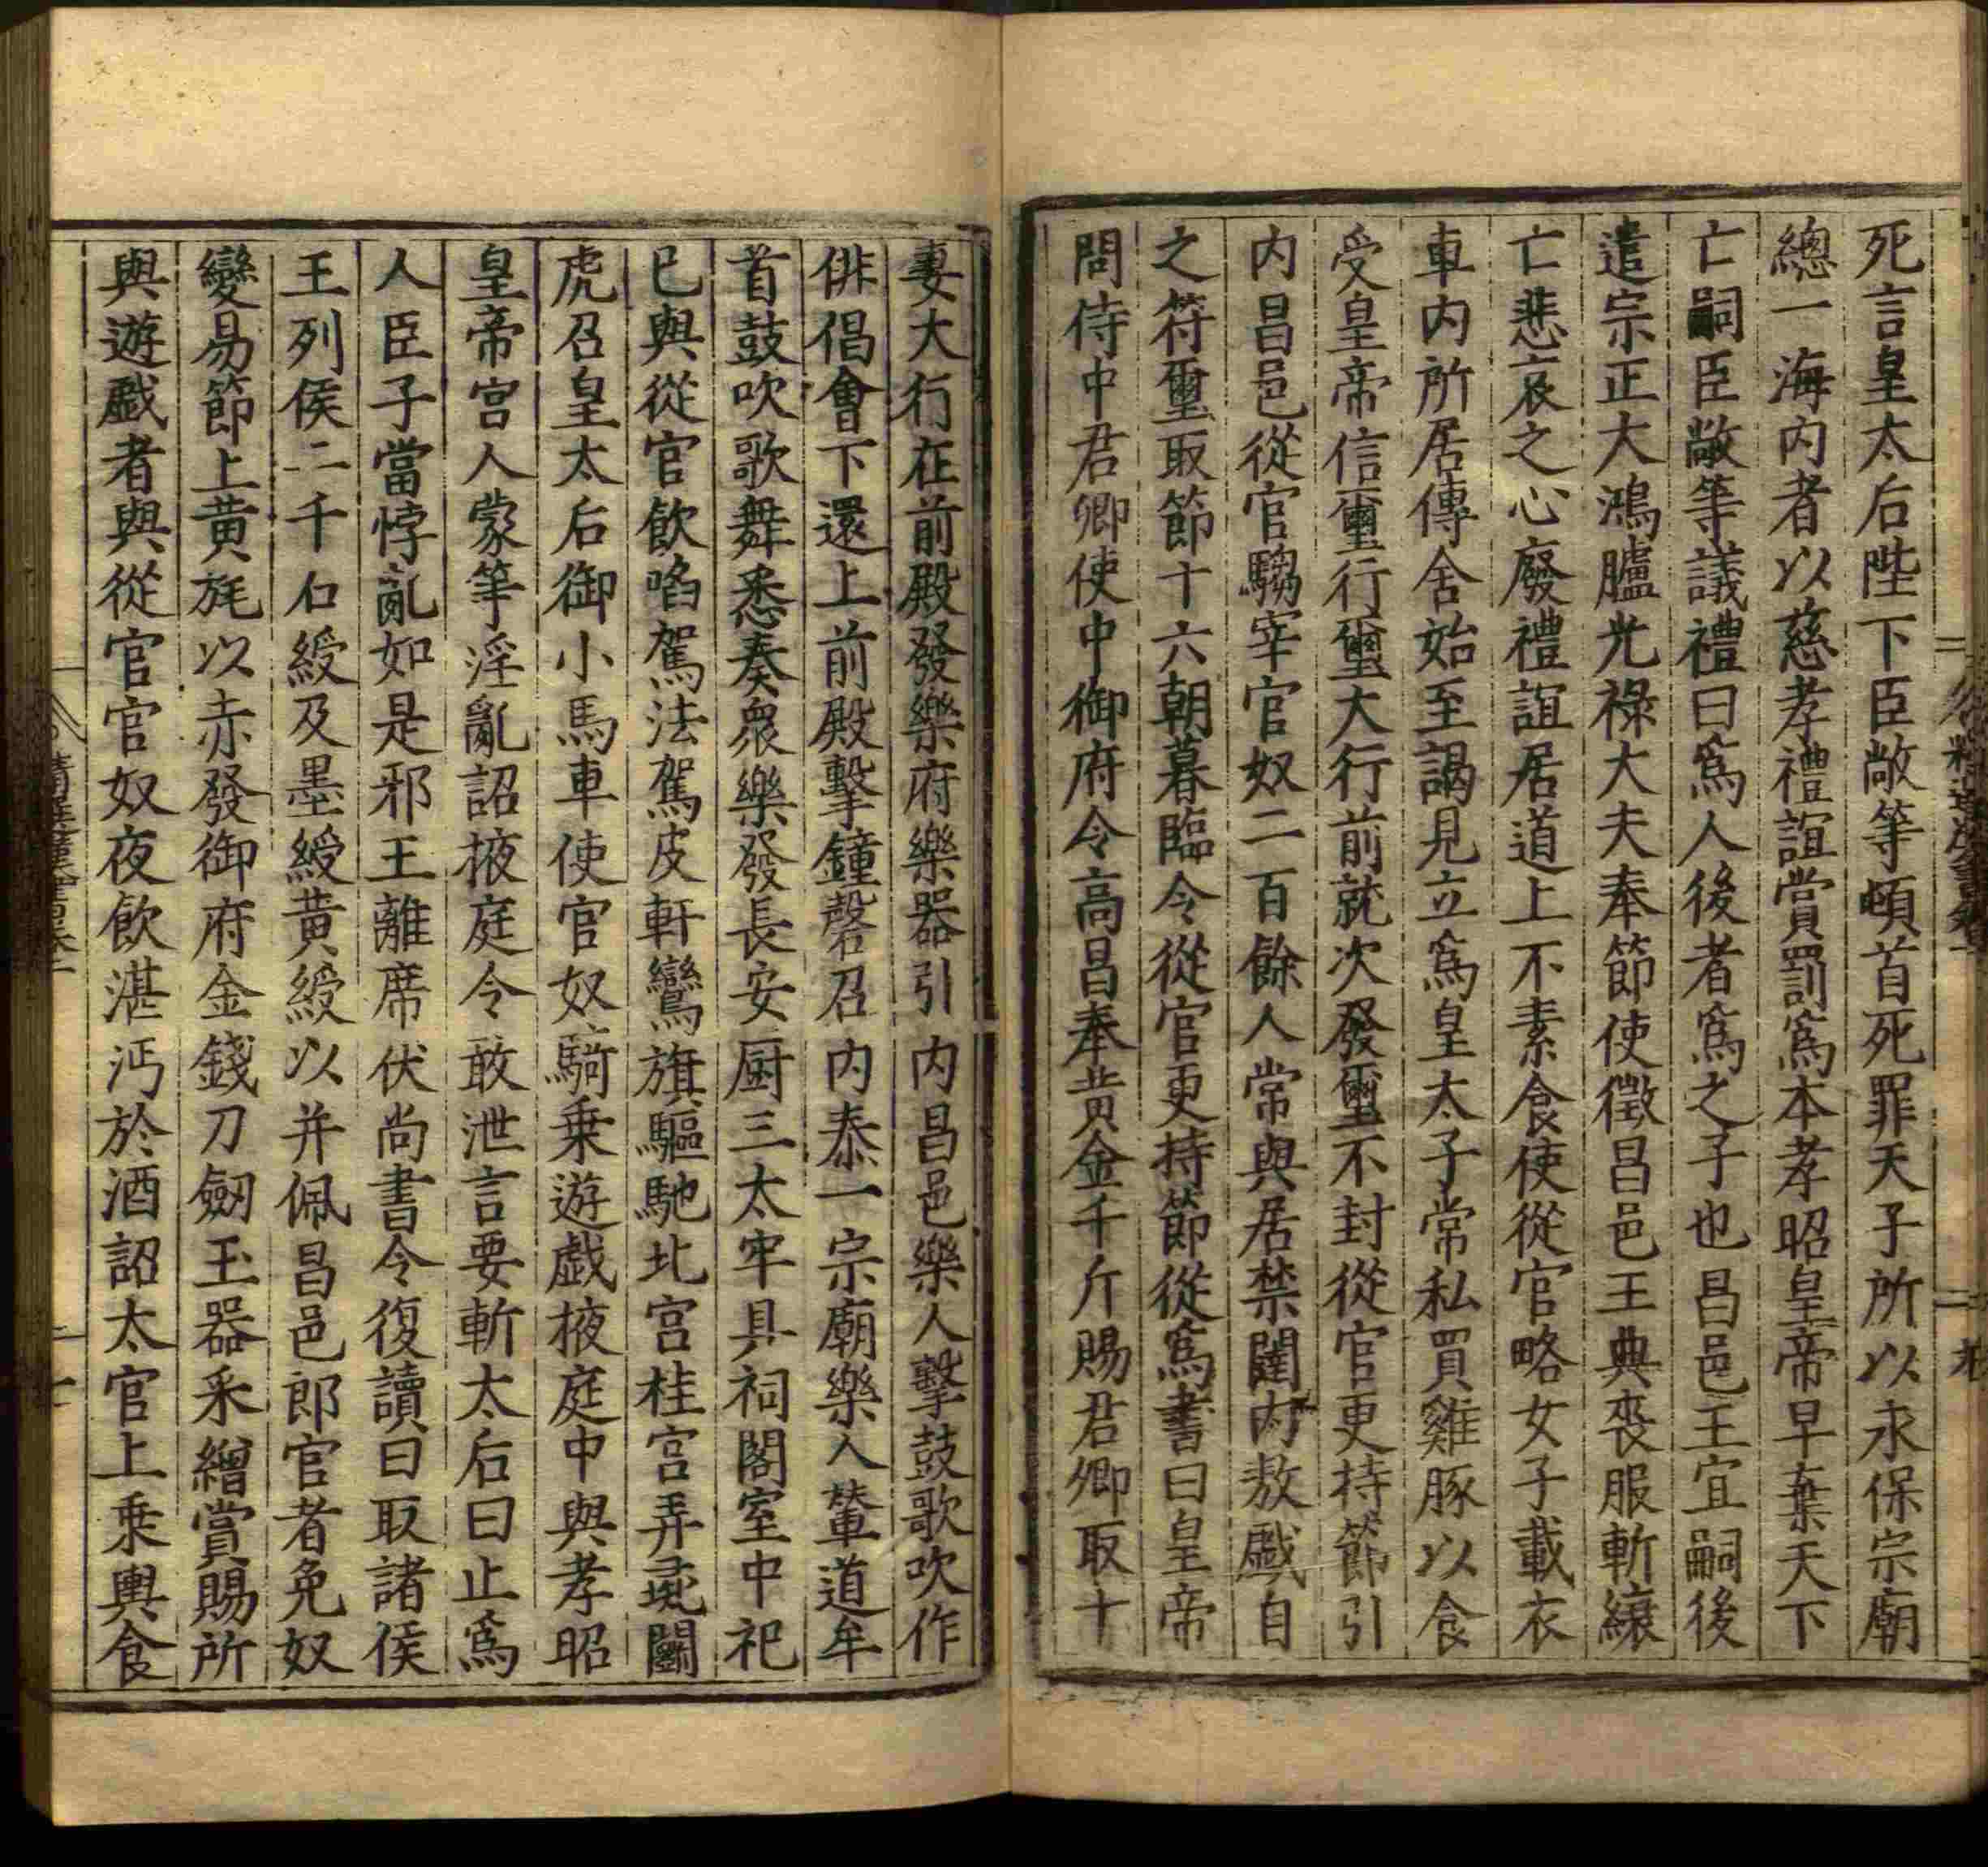 死言皇太后陛下臣敞等頓首死罪天子所以永保宗廟
總一海内者以慈孝禮誼賞罰爲本孝昭皇帝早棄天下
亡嗣臣敞等議禮曰爲人後者爲之子也昌邑王宜嗣後
遣宗正大鴻臚光祿大夫奉節使徵昌邑王典喪服斬縗
亡悲哀之心廢禮誼居道上不素食使從官略女子載衣
車内所居傳舍始至謁見立爲皇太子常私買雞豚以食
受皇帝信璽行璽大行前就次發璽不封從官更持節引
内昌邑從官騶宰官奴二百餘人常與居禁闥内敖戲自
之符璽取節十六朝暮臨令從官更持節從爲書曰皇帝
問侍中君卿使中御府令高昌奉黄金千斤賜君卿取十
妻大行在前殿發樂府樂器引内昌邑樂人擊鼓歌吹作
俳倡會下還上前殿擊鐘磬召内泰一宗廟樂人輦道牟
首鼓吹歌舞悉奏衆樂發長安厨三太牢具祠閣室中祀
已與從官飲啗駕法駕皮軒鸞旗驅馳北宫桂宫弄彘鬭
虎召皇太后御小馬車使官奴騎乗遊戲掖庭中與孝昭
皇帝宫人蒙等淫亂詔掖庭令敢泄言要斬太后曰止爲
人臣子當悖亂如是邪王離席伏尚書令復讀曰取諸侯
王列侯二千石綬及墨綬黄綬以并佩昌邑郎官者免奴
變易節上黄旄以赤發御府金錢刀劒玉器采繒賞賜所
與遊戲者與從官官奴夜飲湛沔於酒詔太官上乗輿食